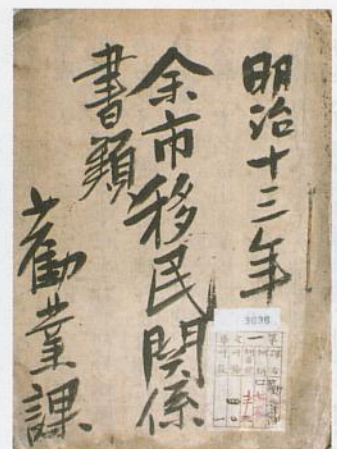 明治十三年
余市移民関係
書類
勧業課